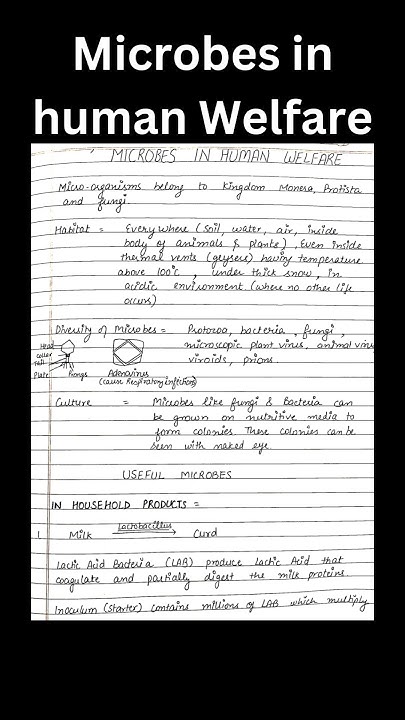 Microbes in
human Welfare
MICROBES IN HUMAN WELFARE
Micro-organisms belong to Kingdom Monera, Protista
and fungi.
Habitat = Everywhere (soil, water, air, inside
body of animals & plants), Even inside
thermal vents (geysers) having temperature
above 100°C, under thick snow, in
acidic environment (where no other life
occurs)
Diversity of Microbes = Protozoa, bacteria, fungi,
microscopic plant virus, animal virus
viroids, prions.
Head
collar
Tail
Plate
Prongs
Adenovirus
(cause Respiratory infections)
Culture = Microbes like fungi & Bacteria can
be grown on nutritive media to
form colonies. These colonies can be
seen with naked eye.
USEFUL MICROBES
IN HOUSEHOLD PRODUCTS =
1 Milk Lactobacillus Curd
Lactic Acid Bacteria (LAB) produce Lactic Acid that
coagulate and partially digest the milk proteins.
Inoculum (starter) contains millions of LAB which multiply